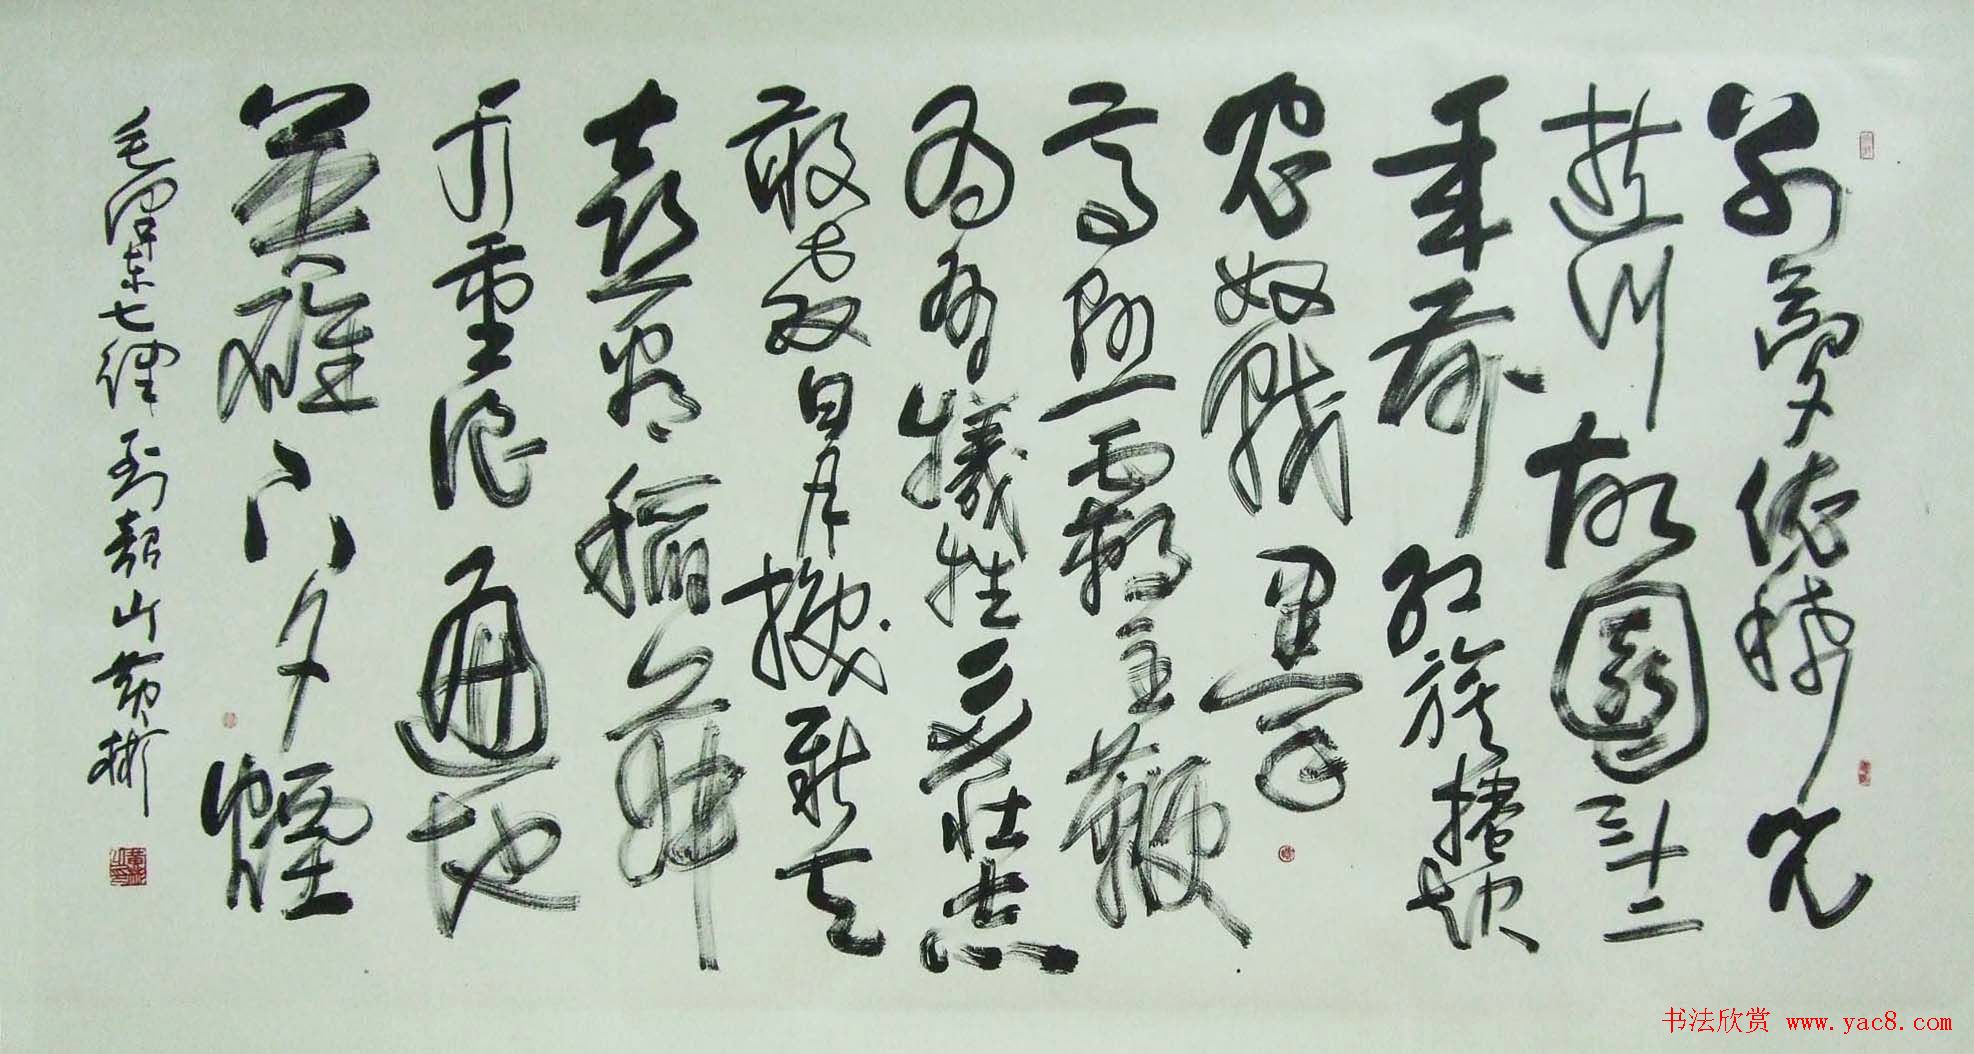 别梦依稀咒
逝川故園三十二
年前红旗捲起
农奴戟黑手
高悬霸主鞭
为有犧牲多壮志
敢教日月换新天
喜看稻菽
千重浪遍地
英雄下夕煙
毛泽东七律到韶山黄彬
书法欣赏 www.yac8.com